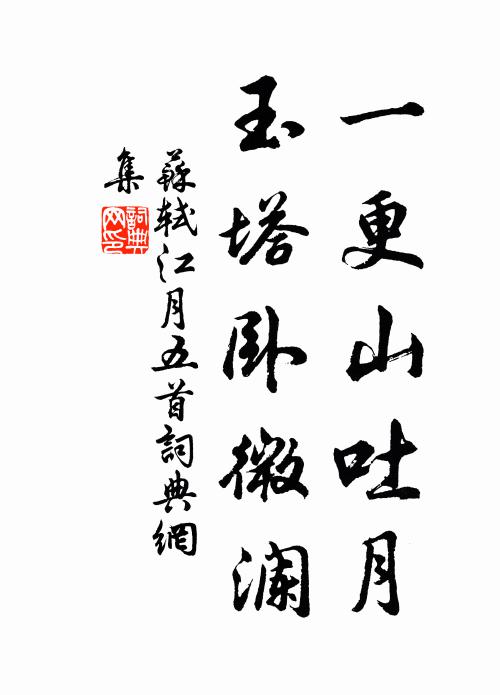 一更山吐月
玉塔卧微澜
蘇軾江月五首詞典網
集
詞典
网印